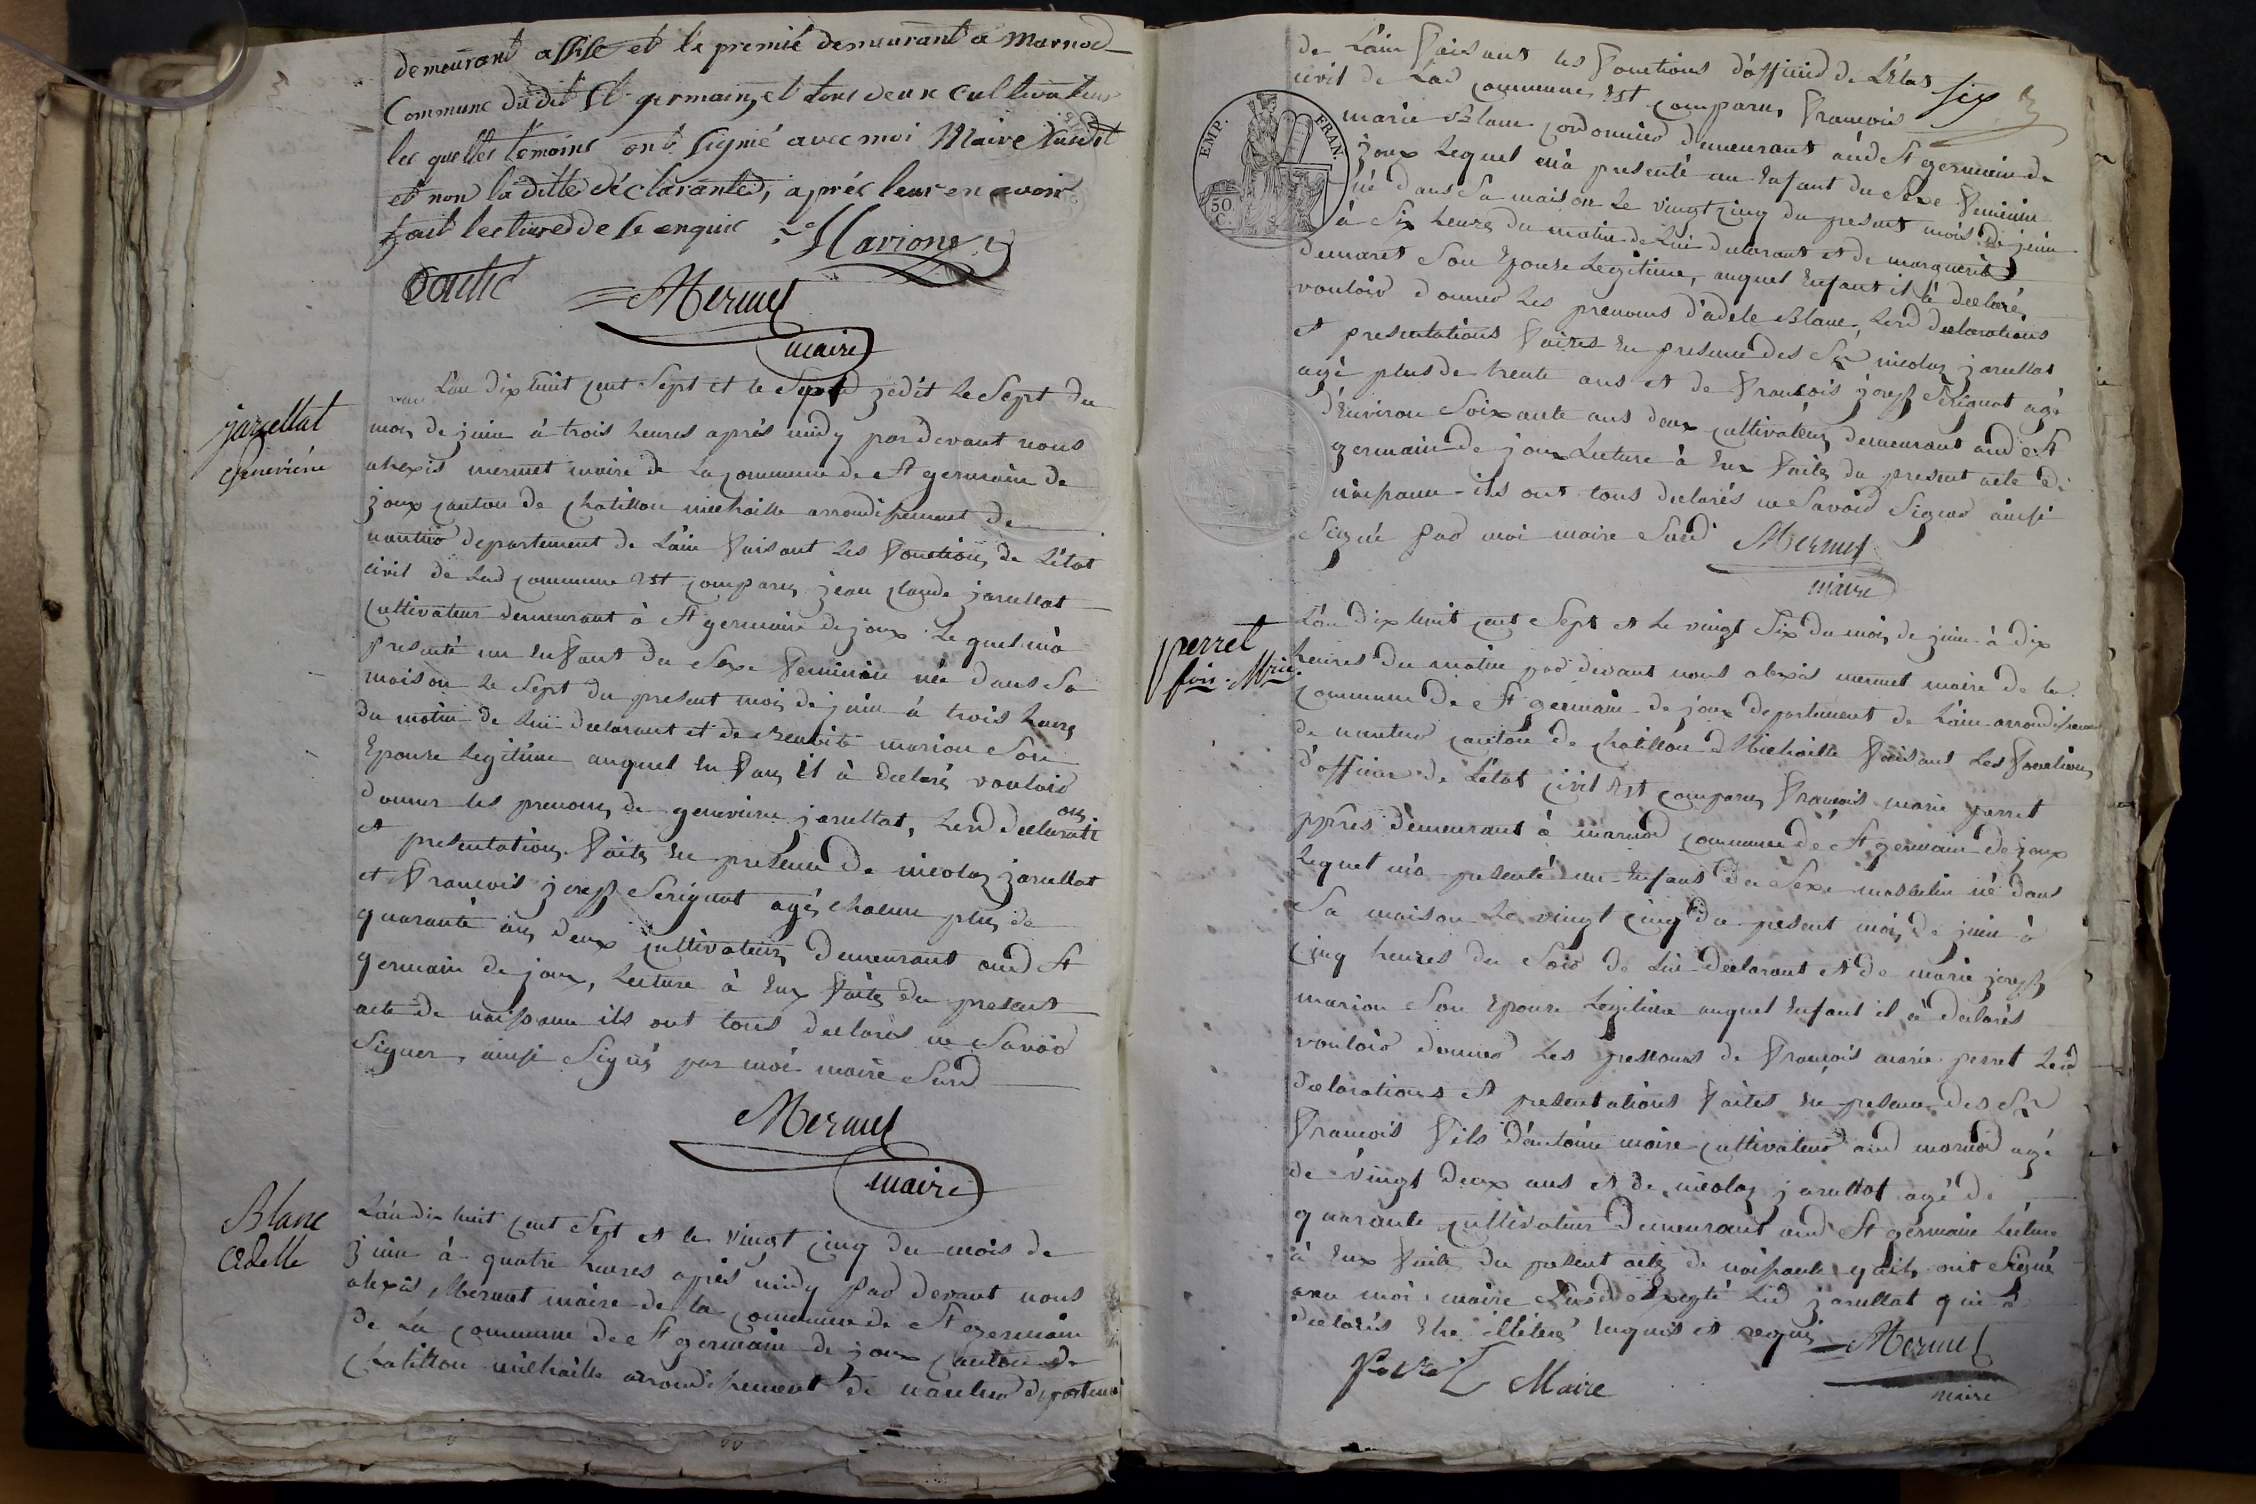 demeurant assise et le premié demeurant a Marnod
Commune du dit St germain, et tous deux Cultivateurs
les quelles témoins ont signé avec moi Maire susdit
et non la ditte déclarante, aprés leur en avoir
fait lecture de ce enquis
Marion
Mermet
maire
jarullat
Genevieve
L'an dix huit cent Sept et le Sept jedit le Sept du
mois de juin à trois heures aprés midy par devant nous
alexis mermet maire de la commune de St germain de
joux canton de chatillon michaille arrondissement de
nantua departement de L'ain faisant les fonctions de L'état
civil de lad commune est comparu jean claude jarullat
cultivateur demeurant à St germain de joux lequel m'a
presenté un enfant du Sexe feminin née dans Sa
maison le Sept du present mois de juin à trois heures
du matin de lui declarant et de benoite marion Son
Epouse legitime auquel enfant il à declaré vouloir
donner les prenoms de genevieve jarullat, lesd declarati
ons
et presentations faites en presence de nicolas jarullat
et francois joseph Serignat agés chacun plus de
quarante ans deux cultivateurs demeurant aud St
germain de joux, lecture à eux faites du present
acte de naissance ils ont tous declarés ne Savoir
Signer, ainsi Signé par moi maire Susd
Mermet
maire
Blanc
Adelle
L'an dix huit cent Sept et le vingt cinq du mois de
juin à quatre heures aprés midy par devant nous
alexis Mermet maire de la commune de St germain
de La commune de St germain de joux canton de
chatillon michaille arrondissement de nantua departement
six
de L'ain faisant les fonctions d'officier de L'état
civil de Lad commune est comparu francois
marie Blanc cordonnier demeurant aud St germain de
joux lequel m'a presenté un enfant du Sexe feminin
né dans Sa maison le vingt cinq du present mois de juin
à Six heures du matin de lui declarant et de marguerite
demaret Son Epouse Legitime, auquel Enfant il à declaré
vouloir donner les prenoms d'adele Blanc, lesd declarations
et presentations faites en presence des Sr nicolas jarullat
agé plus de trente ans et de francois joseph Serignat agé
d'environ Soixante ans deux cultivateurs demeurant aud St
germain de joux lecture à eux faites du present acte de
naissance ils ont tous declarés ne Savoir Signer ainsi
Signé par moi maire Susd
Mermet
maire
EMP. FRAN.
50
C.
perret
fois. Mrie.
L'an dix huit cent Sept et le vingt Six du mois de juin à dix
heures du matin par devant nous alexis mermet maire de la
commune de St germain de joux departement de L'ain arrondissement
de nantua canton de chatillon de Michaille faisant les fonctions
d'officier de L'état civil est comparu francois marie perret
pptres demeurant à marnod commune de St germain de joux
lequel m'a presenté un enfant du Sexe masculin né dans
Sa maison le vingt cinq du present mois de juin à
cinq heures du Soir de lui declarant et de marie joseph
marion Son epouse legitime auquel enfant il à declarés
vouloir donner les prenoms de francois marie perret lesd
declarations et presentations faites en presence des Sr
francois fils d'antoine maire cultivateur aud marnod agé
de vingt deux ans et de nicolas jarullat agé de
quarante cultivateur demeurant aud St germain lecture
à eux faite du present acte de naissance qu'ils ont Signé
avec moi maire Susd excepté led jarullat qui à
declarés etre illiteré enquis et requis
Mermet
maire
Maire